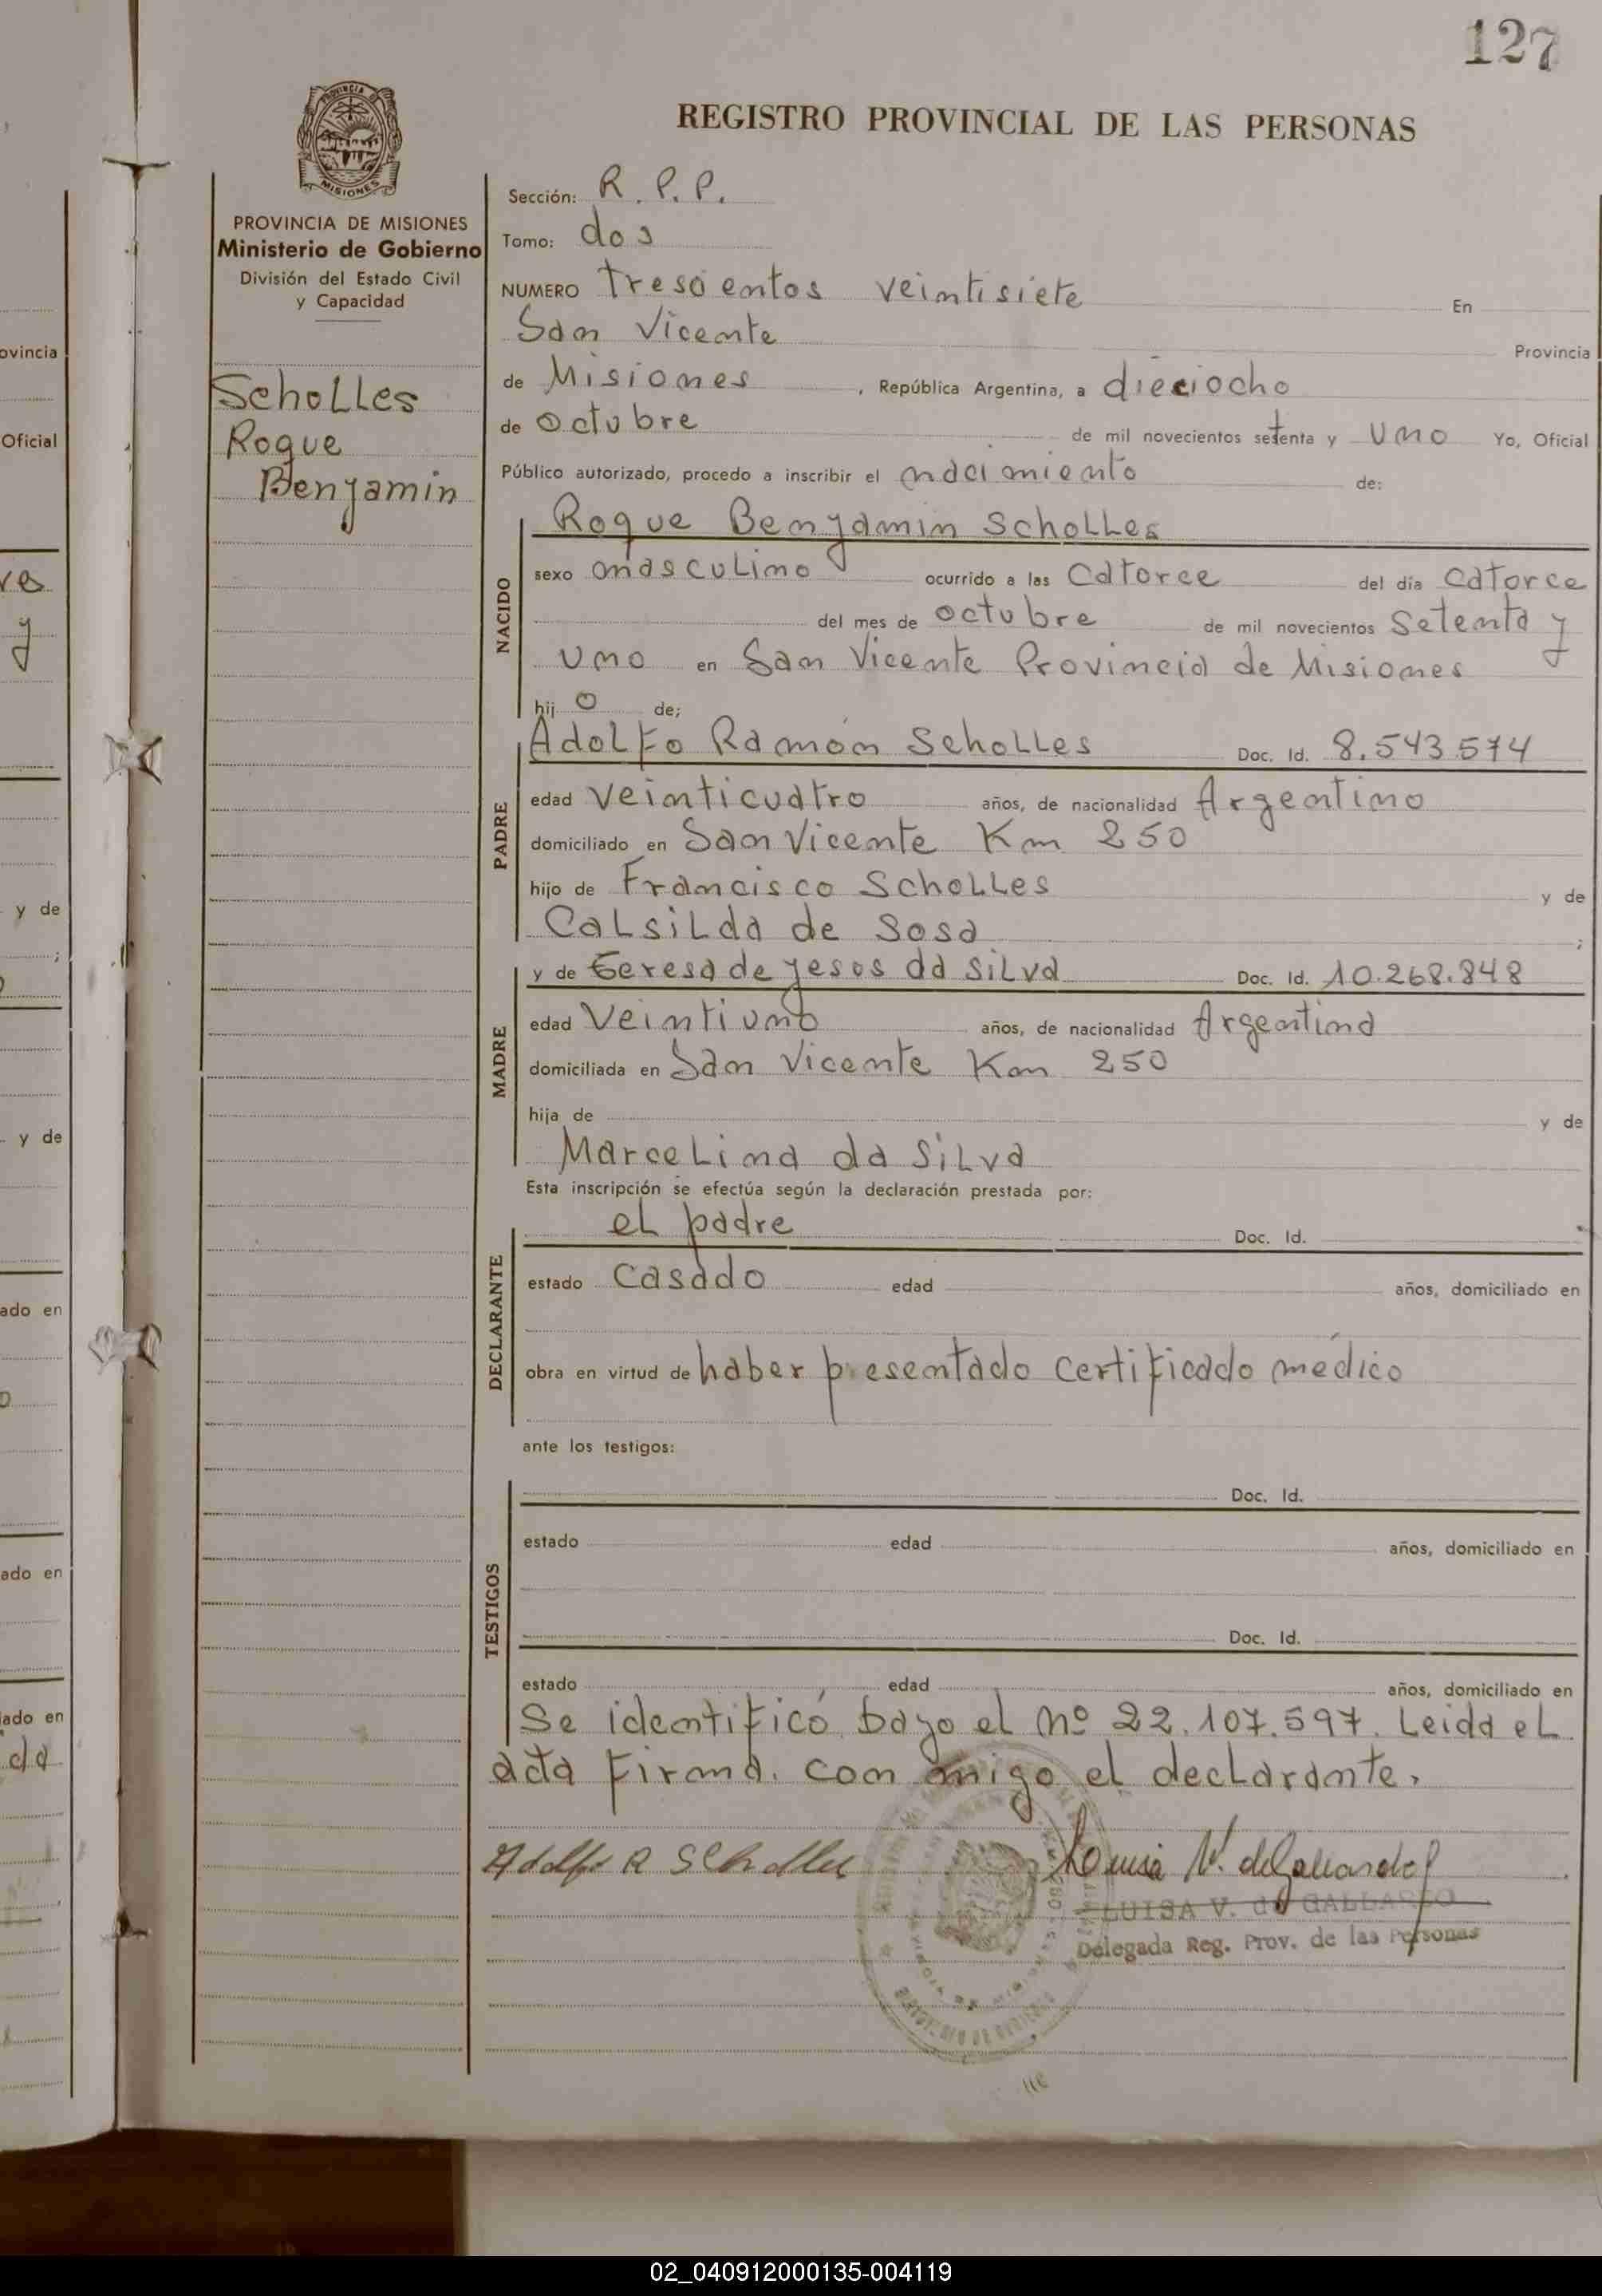 127
REGISTRO PROVINCIAL DE LAS PERSONAS
PROVINCIA DE MISIONES
Ministerio de Gobierno
División del Estado Civil
y Capacidad
Scholles
Roque
Benjamin
Sección: R.P.P.
Tomo: dos
NUMERO Tresientos veintisiete En
San Vicente Provincia
de Misiones, República Argentina, a dieciocho
de octubre de mil novecientos setenta y uno Yo, Oficial
Público autorizado, procedo a inscribir el nacimiento de:
NACIDO
Roque Benjamin Scholles
sexo masculino ocurrido a las catorce del día catorce
del mes de octubre de mil novecientos setenta y
uno en San Vicente Provincia de Misiones
hijo de;
PADRE
Adolfo Ramón Scholles Doc. Id. 8.543.574
edad veinticuatro años, de nacionalidad Argentino
domiciliado en San Vicente Km 250
hijo de Francisco Scholles y de
Calsilda de Sosa ;
MADRE
y de Teresa de jesos da Silva Doc. Id. 10.268.848
edad Veintiuno años, de nacionalidad Argentina
domiciliada en San Vicente Km 250
hija de y de
Marcelina da Silva
Esta inscripción se efectúa según la declaración prestada por:
DECLARANTE
el padre Doc. Id.
estado Casado edad años, domiciliado en
obra en virtud de haber presentado certificado médico
ante los testigos:
TESTIGOS
Doc. Id.
estado edad años, domiciliado en
Doc. Id.
estado edad años, domiciliado en
Se identificó bajo el nº 22.107.597. Leida el
acta firma. con migo el declarante.
Adolfo R Scholles
LUISA V. de GALLARDO
Delegada Reg. Prov. de las Personas
ovincia
Oficial
y de
y de
ado en
ado en
ado en
da
02_040912000135-004119